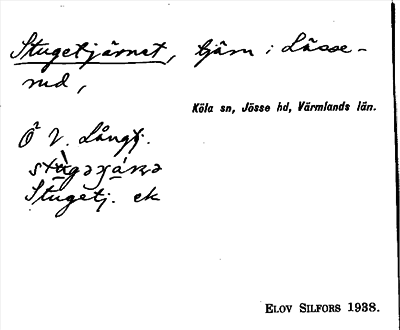 Stugetjärnet, tjärn i Lässe-
rud,
Köla sn, Jösse hd, Värmlands län.
Ö V. Långtj.
Stugetj. ek
ELOV SILFORS 1938.